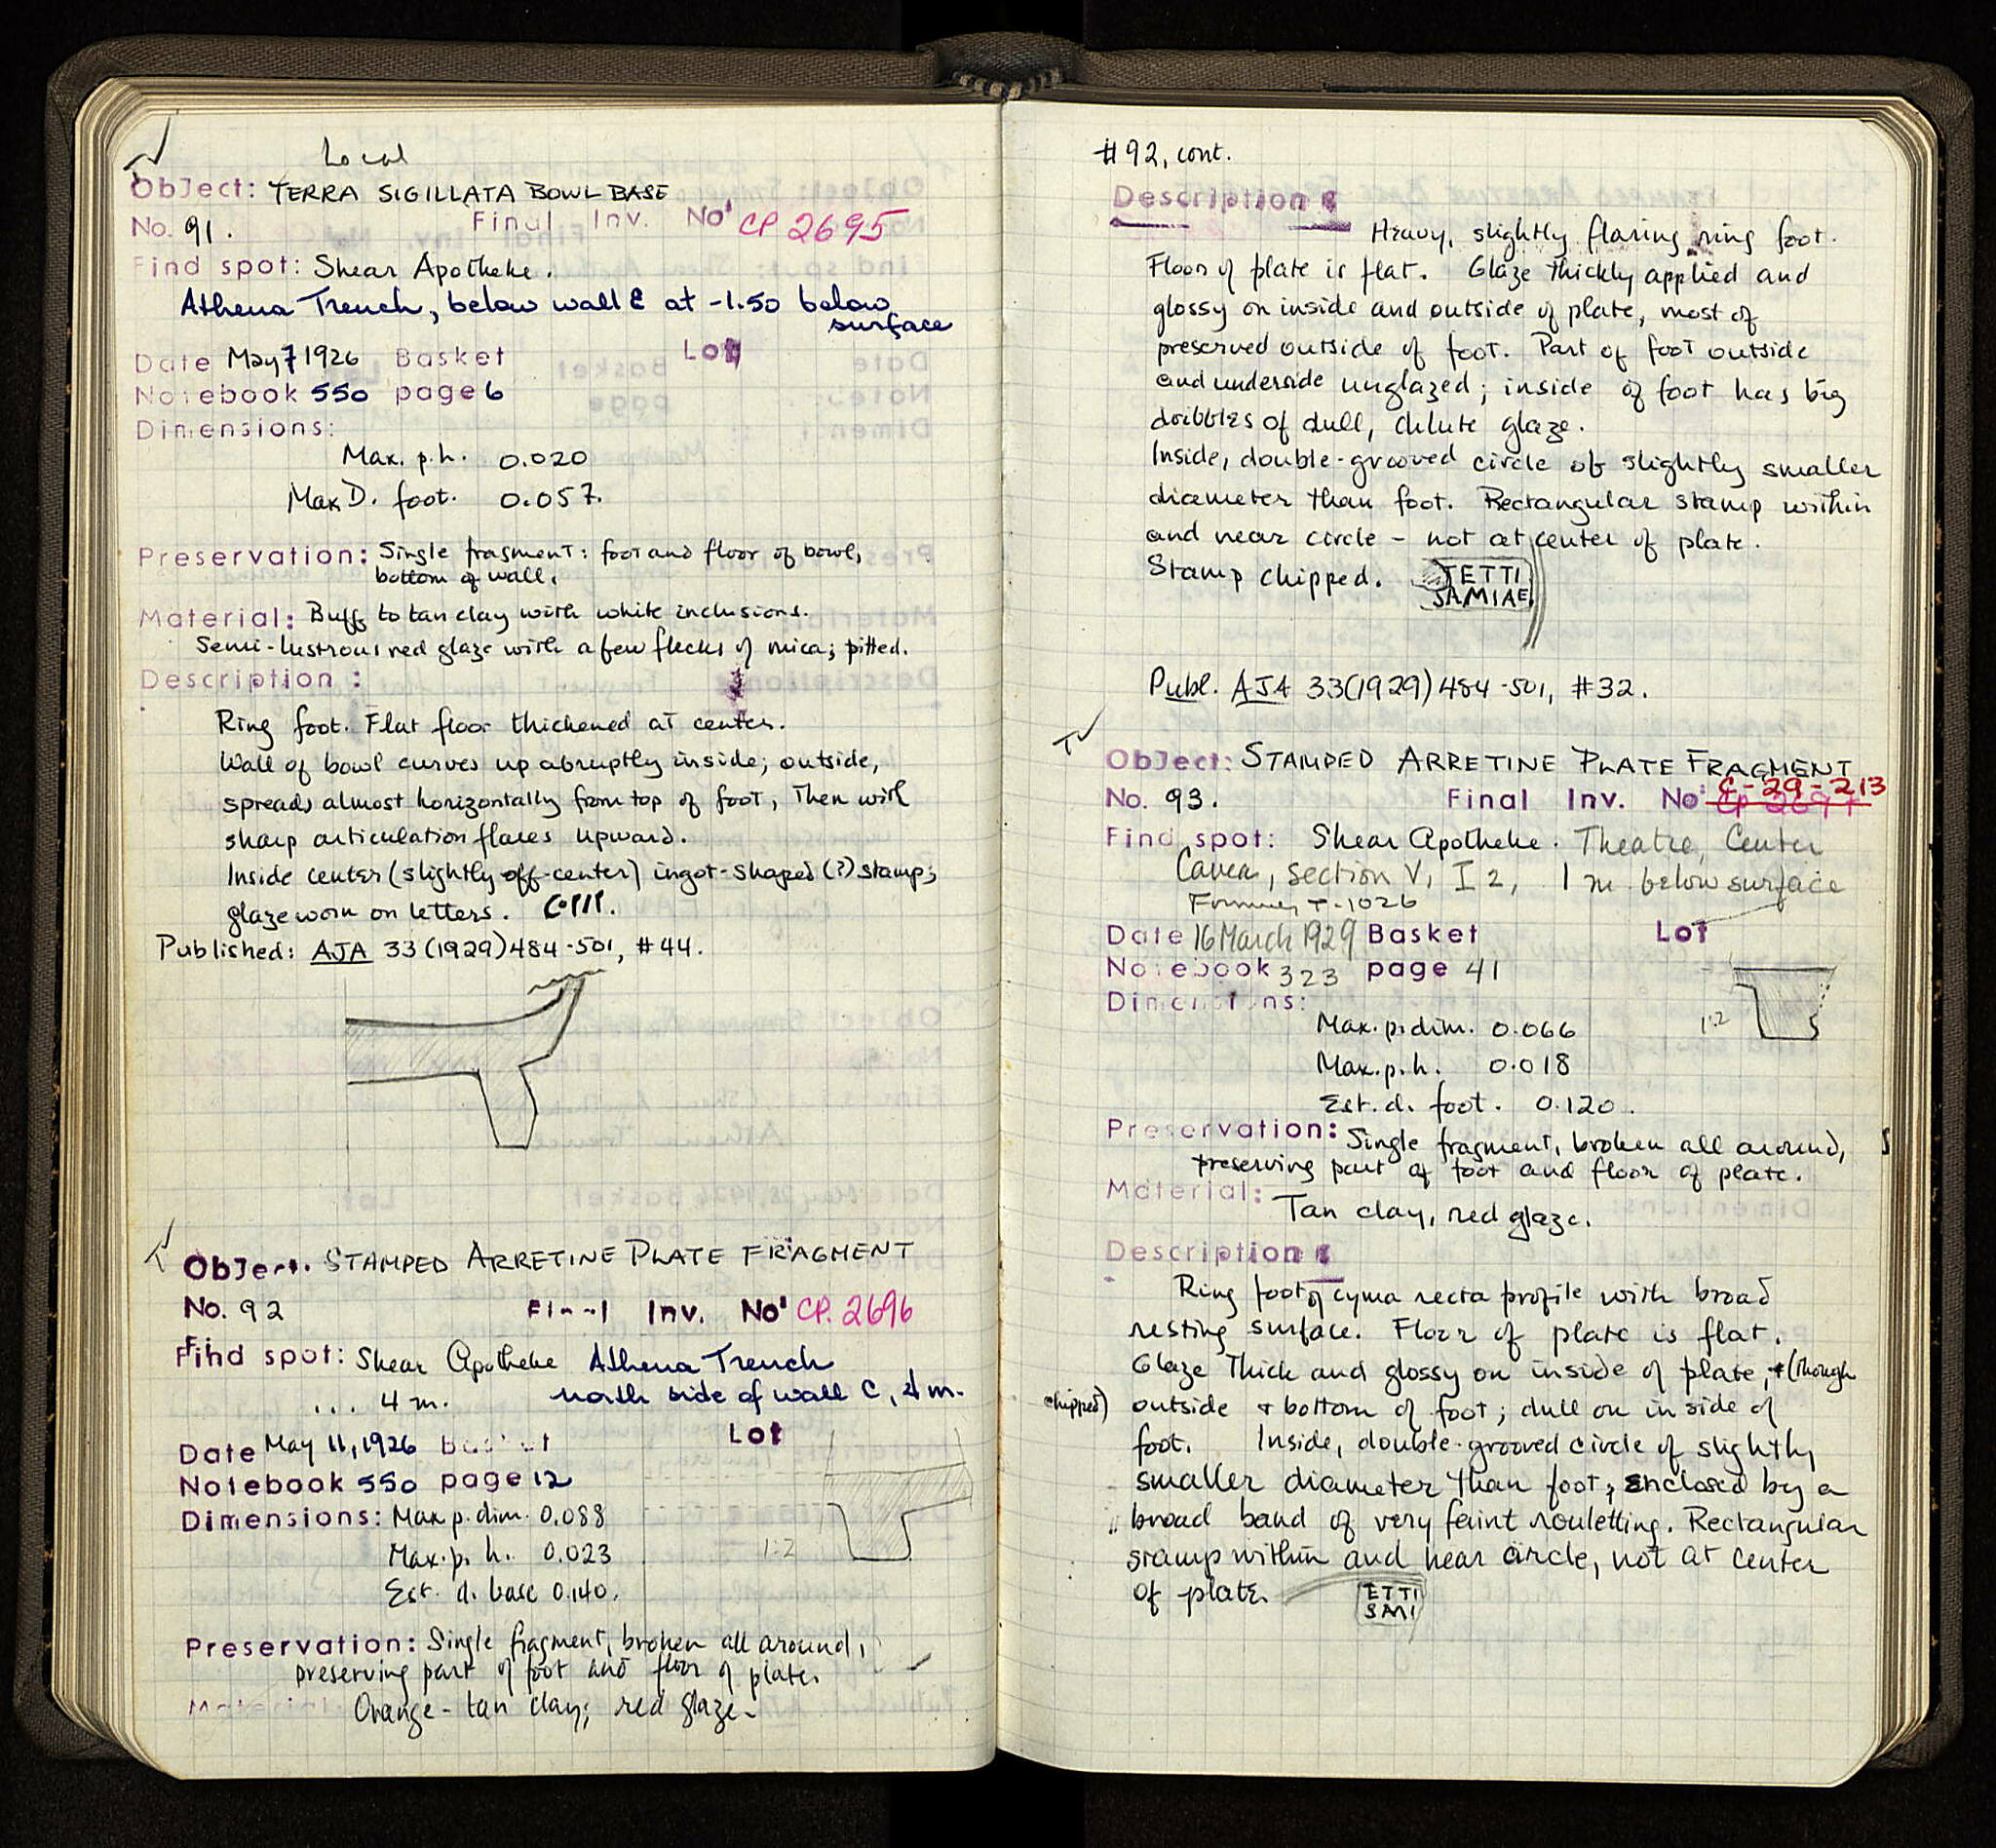 Local
Object: TERRA SIGILLATA BOWL BASE
No. 91. Final Inv. No' CP 2695
Find spot: Shear Apotheke.
Athena Trench, below wall E at -1.50 below
surface
Date May 7 1926 Basket Lot
Notebook 550 page 6
Dimensions:
Max. p.h. 0.020
Max D. foot. 0.057.
Preservation: Single fragment: foot and floor of bowl,
bottom of wall.
Material: Buff to tan clay with white inclusions.
Semi-lustrous red glaze with a few flecks of mica; pitted.
Description:
Ring foot. Flat floor thickened at center.
Wall of bowl curves up abruptly inside; outside,
spreads almost horizontally from top of foot, then with
sharp articulation flares upward.
Inside center (slightly off-center) ingot-shaped (?) stamp;
glaze worn on letters.
Published: AJA 33 (1929) 484-501, #44.
Object. STAMPED ARRETINE PLATE FRAGMENT
No. 92 Final Inv. No' CP. 2696
Find spot: Shear Apotheke Athena Trench
... 4 m. north side of wall C, 4 m.
Date May 11, 1926 Basket Lot
Notebook 550 page 12
Dimensions: Max p. dim. 0.088
Max. p. h. 0.023
1:2
Est. d. base 0.140.
Preservation: Single fragment, broken all around,
preserving part of foot and floor of plate.
Material: Orange-tan clay; red glaze.
#92, cont.
Description:
Heavy, slightly flaring ring foot.
Floor of plate is flat. Glaze thickly applied and
glossy on inside and outside of plate, most of
preserved outside of foot. Part of foot outside
and underside unglazed; inside of foot has big
dribbles of dull, dilute glaze.
Inside, double-grooved circle of slightly smaller
diameter than foot. Rectangular stamp within
and near circle - not at center of plate.
Stamp chipped. TETTI
SAMIAE
Publ. AJA 33 (1929) 484-501, #32.
Object: STAMPED ARRETINE PLATE FRAGMENT
No. 93. Final Inv. No' C-29-213
CP 2697
Find spot: Shear Apotheke. Theatre, Center
Cavea, Section V, I 2, 1 m. below surface
Formerly T-1026
Date 16 March 1929 Basket Lot
Notebook 323 page 41
Dimensions:
Max. p. dim. 0.066
1:2
Max. p. h. 0.018
Est. d. foot. 0.120.
Preservation: Single fragment, broken all around,
preserving part of foot and floor of plate.
Material: Tan clay, red glaze.
Description:
Ring foot of cyma recta profile with broad
resting surface. Floor of plate is flat.
Glaze thick and glossy on inside of plate, + (though
chipped) outside + bottom of foot; dull on inside of
foot. Inside, double-grooved circle of slightly
smaller diameter than foot, enclosed by a
broad band of very faint rouletting. Rectangular
stamp within and near circle, not at center
of plate. ETTI
SAMI